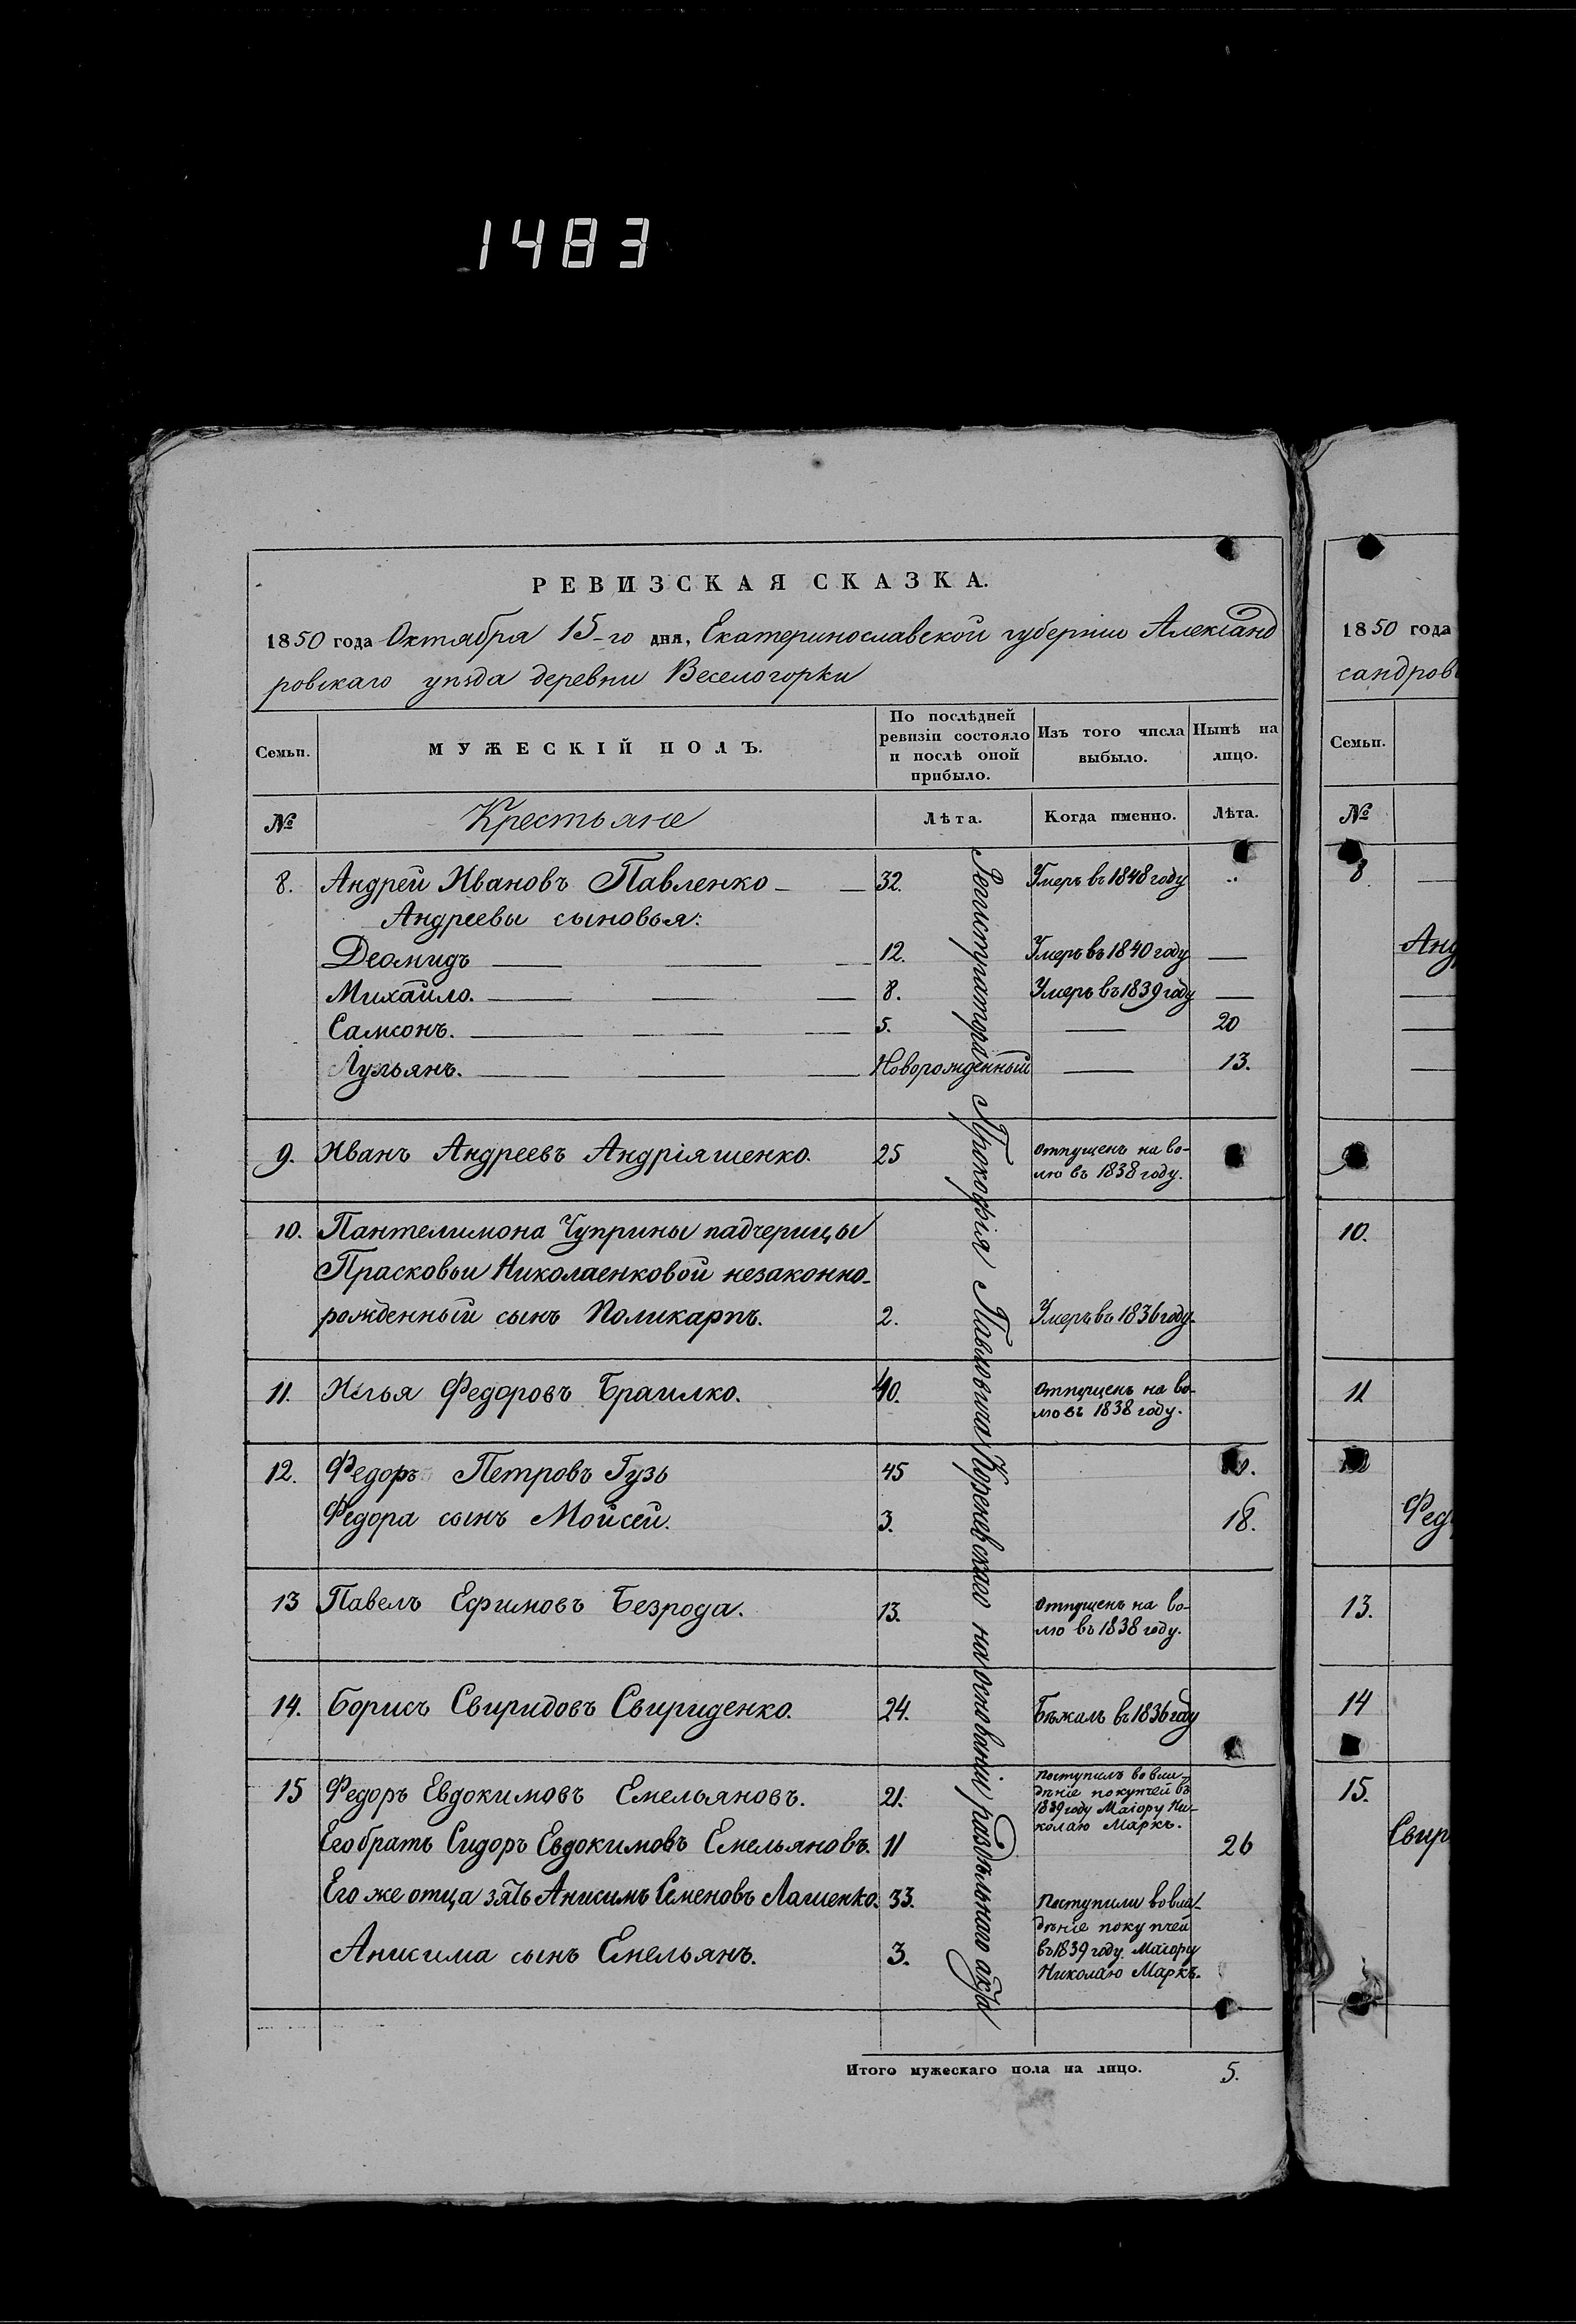 1483
РЕВИЗСКАЯ СКАЗКА.
1850 года Октября 15-го дня, Екатеринославской губерніи Александ
ровскаго уѣзда деревни Веселогорки
Семьи.
МУЖЕСКІЙ ПОЛЪ.
По послѣдней
ревизіи состояло
и послѣ оной
прибыло.
Изъ того числа
выбыло.
Нынѣ на
лицо.
№ Крестьяне Лѣта. Когда именно. Лѣта.
8. Андрей Ивановъ Павленко 32. Умеръ въ 1848 году
Андреевы сыновья:
Деомидъ 12. Умеръ въ 1840 году —
Михайло. 8. Умеръ въ 1839 году —
Самсонъ. 5. — 20
Лульянъ. Новорожденный — 13.
9. Иванъ Андреевъ Андріяшенко. 25 Отпущенъ на во-
лю въ 1838 году.
10. Пантелимона Чуприны падчерицы
Прасковьи Николаенковой незаконно-
рожденный сынъ Поликарпъ. 2. Умеръ въ 1836 году.
11. Илья Федоровъ Браилко. 40. Отпущенъ на во-
лю въ 1838 году.
12. Федоръ Петровъ Гузь 45
Федора сынъ Мойсей. 3. 18.
13 Павелъ Ефимовъ Безрода. 13. Отпущенъ на во-
лю въ 1838 году.
14. Борисъ Свиридовъ Свириденко. 24. Бѣжалъ въ 1836 году
15 Федоръ Евдокимовъ Емельяновъ. 21. Поступилъ во вла-
дѣніе покупчей въ
1839 году Маіору Ни-
колаю Маркъ.
Его братъ Сидоръ Евдокимовъ Емельяновъ. 11 26
Его же отца зять Анисимъ Семеновъ Лашенко. 33. Поступили во вла-
дѣніе покупчей
Анисима сынъ Емельянъ. 3. въ 1839 году Маіору
Николаю Маркъ.
Регистратора Прокофія Павловича Кореневскаго на основаніи раздѣльнаго акта
Итого мужескаго пола на лицо. 5.
1850 года
сандров
Семьи.
№
8
Анд
10.
11
Фед
13.
14
15.
Свир